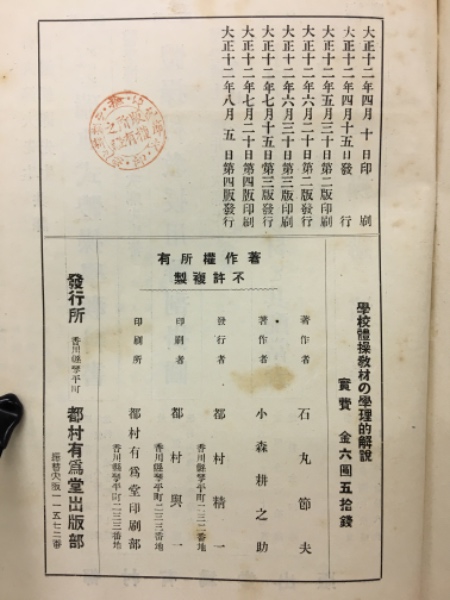 大正十二年四月十日印刷
大正十二年四月十五日發行
大正十二年五月三十日第二版印刷
大正十二年六月二十日第二版發行
大正十二年六月三十日第三版印刷
大正十二年七月十五日第三版發行
大正十二年七月二十日第四版印刷
大正十二年八月五日第四版發行
學校體操教材の學理的解說
實費 金六圓五拾錢
著作權所有
不許複製
著作者 石丸節夫
著作者 小森耕之助
發行者 都村精一
香川縣琴平町一三二番地
印刷者 都村興一
香川縣琴平町二三三番地
印刷所 都村有爲堂印刷部
香川縣琴平町二三三番地
發行所 香川縣琴平町 都村有爲堂出版部
振替大阪一一五七二番